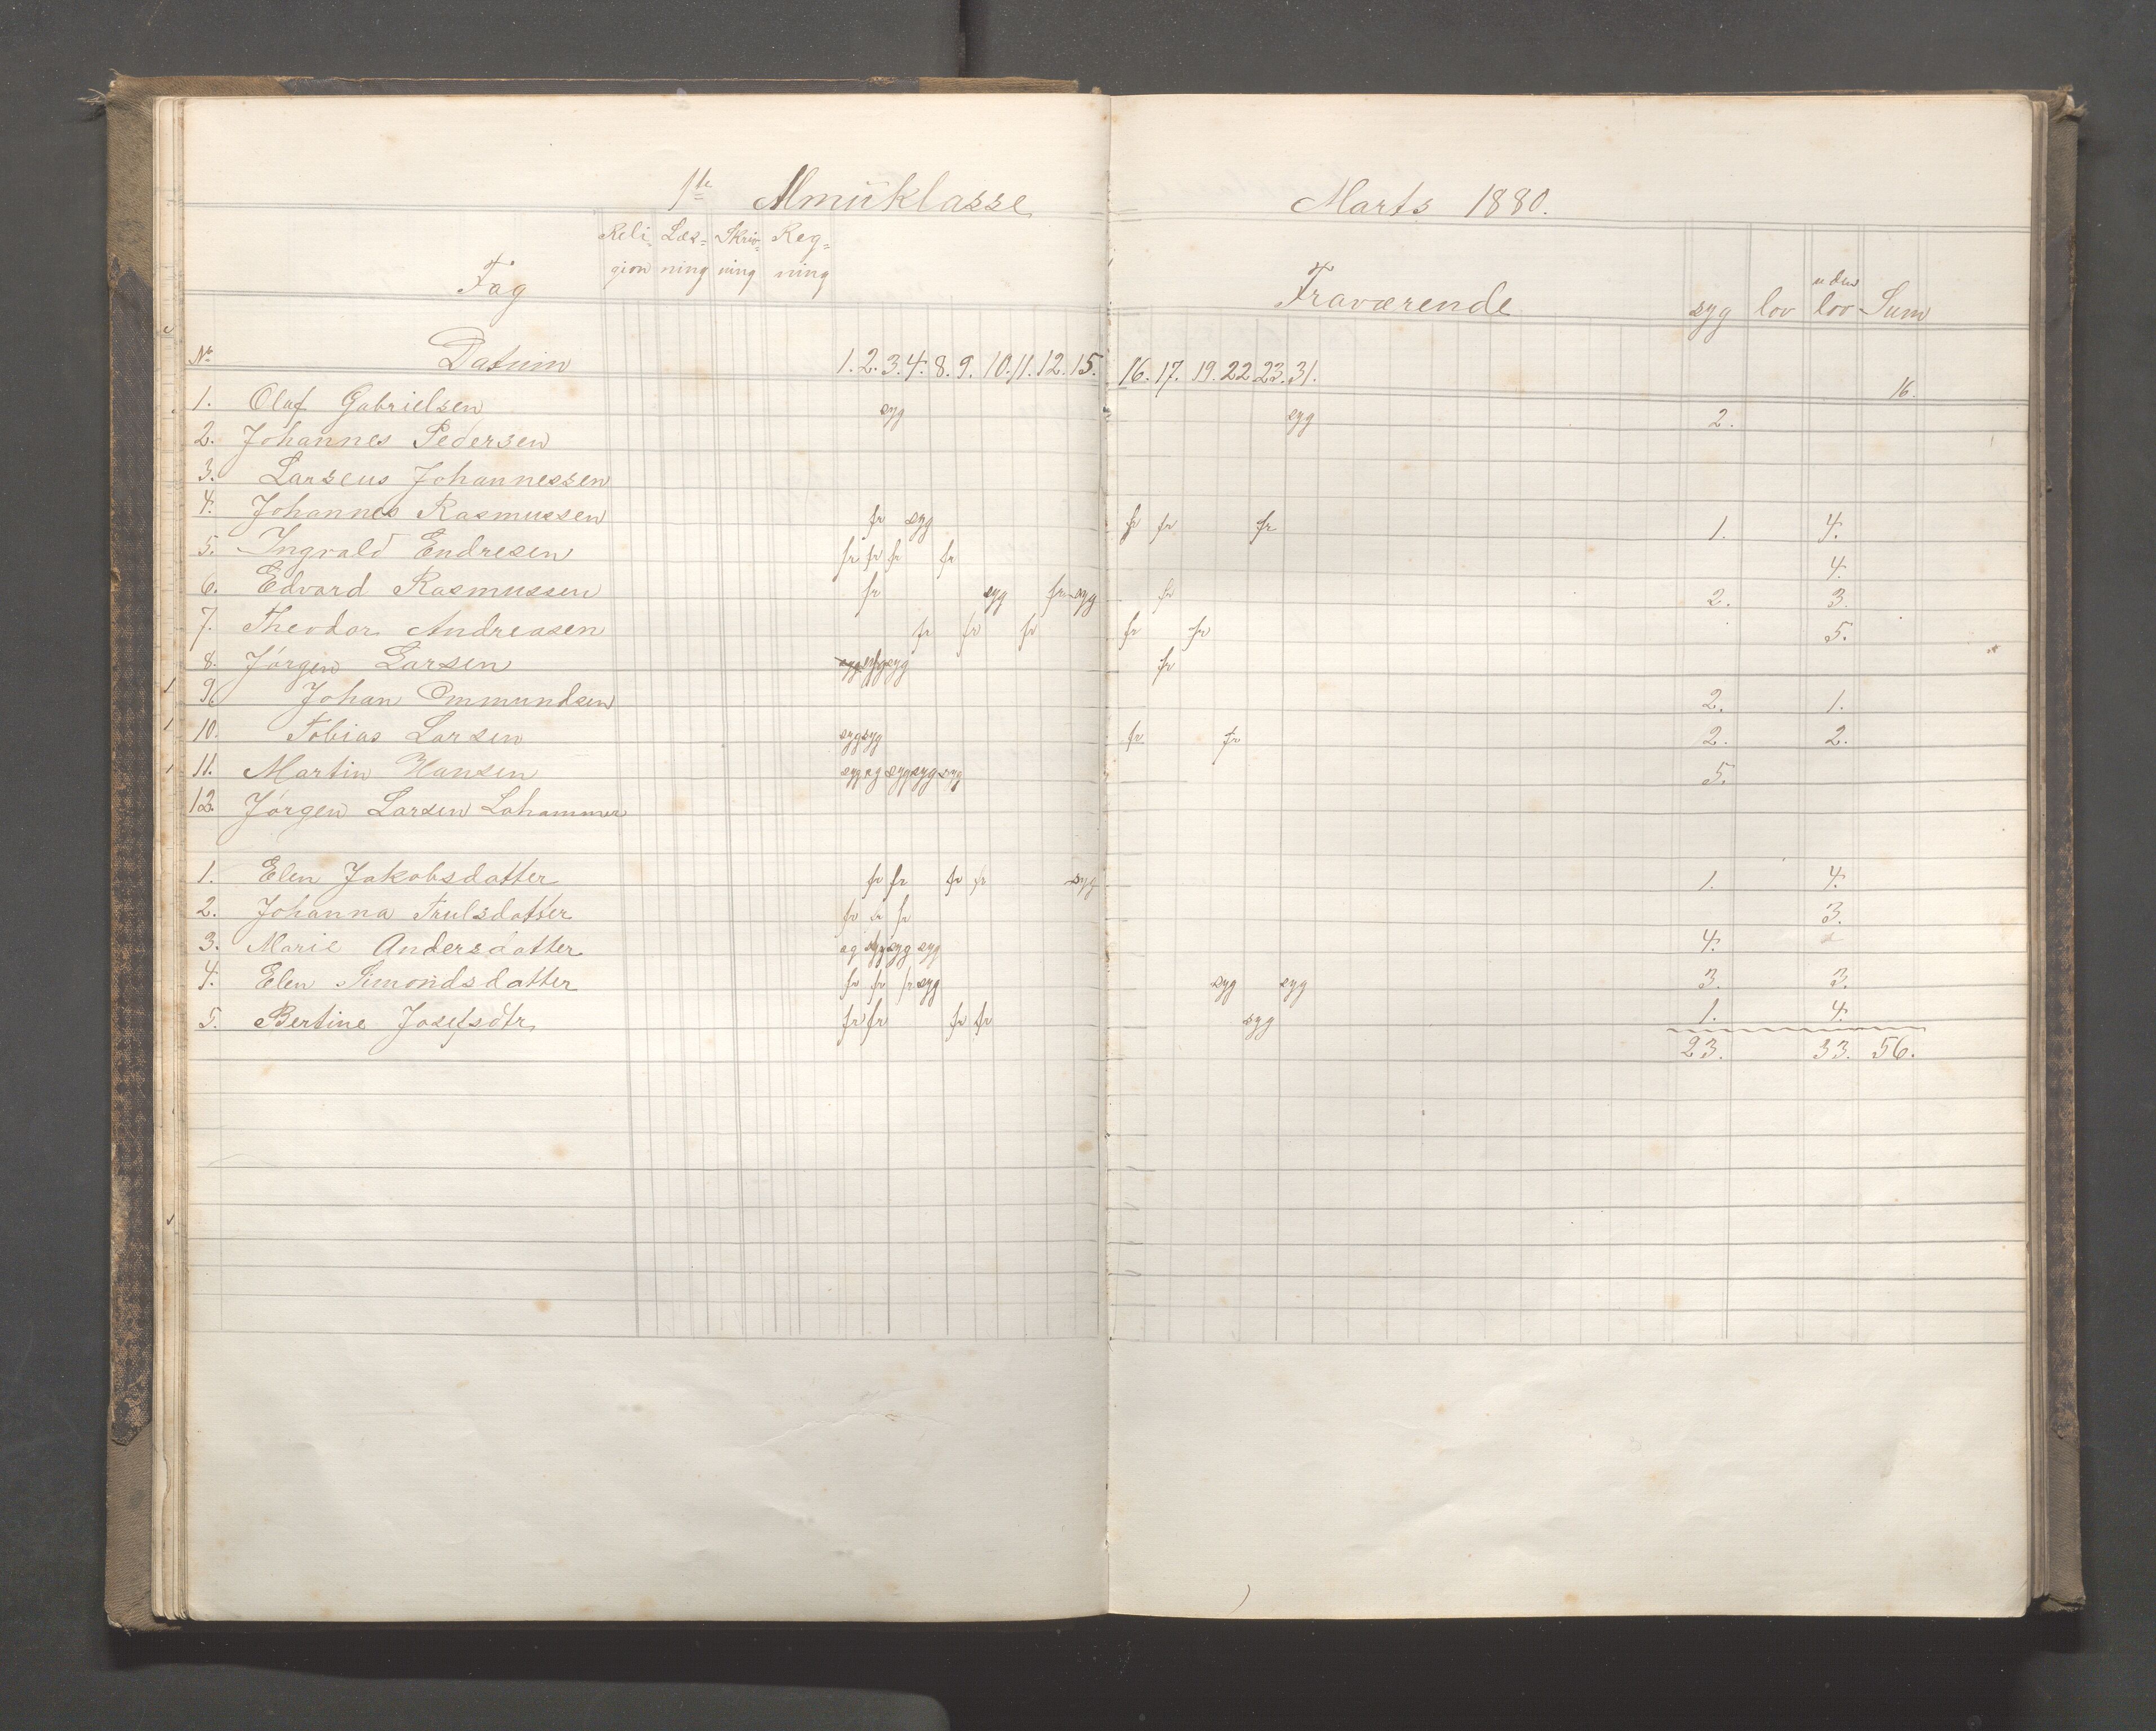 1ste Almüklasse Marts 1880.
Reli- Læs- Skriv- Reg-
gion ning ning ning
Fag Fraværende syg lov uden lov Sum
No Datum 1. 2. 3. 4. 8. 9. 10. 11. 12. 15. 16. 17. 19. 22. 23. 31. 16.
1. Oluf Gabrielsen syg syg 2.
2. Johannes Pedersen
3. Larseus Johannessen
4. Johannes Rasmussen fr syg fr fr fr 1. 4.
5. Ingvald Endresen fr fr fr fr 4.
6. Edvard Rasmussen fr syg fr syg fr 2. 3.
7. Theodor Andreasen fr fr fr fr fr 5.
8. Jørgen Larsen syg syg syg fr
9. Johan Ommundsen 2. 1.
10. Tobias Larsen syg syg fr fr 2. 2.
11. Martin Hansen syg sg syg syg syg 5.
12. Jørgen Larsen Lohammer
1. Elen Jakobsdatter fr fr fr fr syg 1. 4.
2. Johanna Trulsdatter fr fr fr 3.
3. Marie Andersdatter sg syg syg syg 4.
4. Elen Simondsdatter fr fr fr syg syg syg 3. 3.
5. Bertine Josefsdtr fr fr fr fr syg 1. 4.
23. 33. 56.